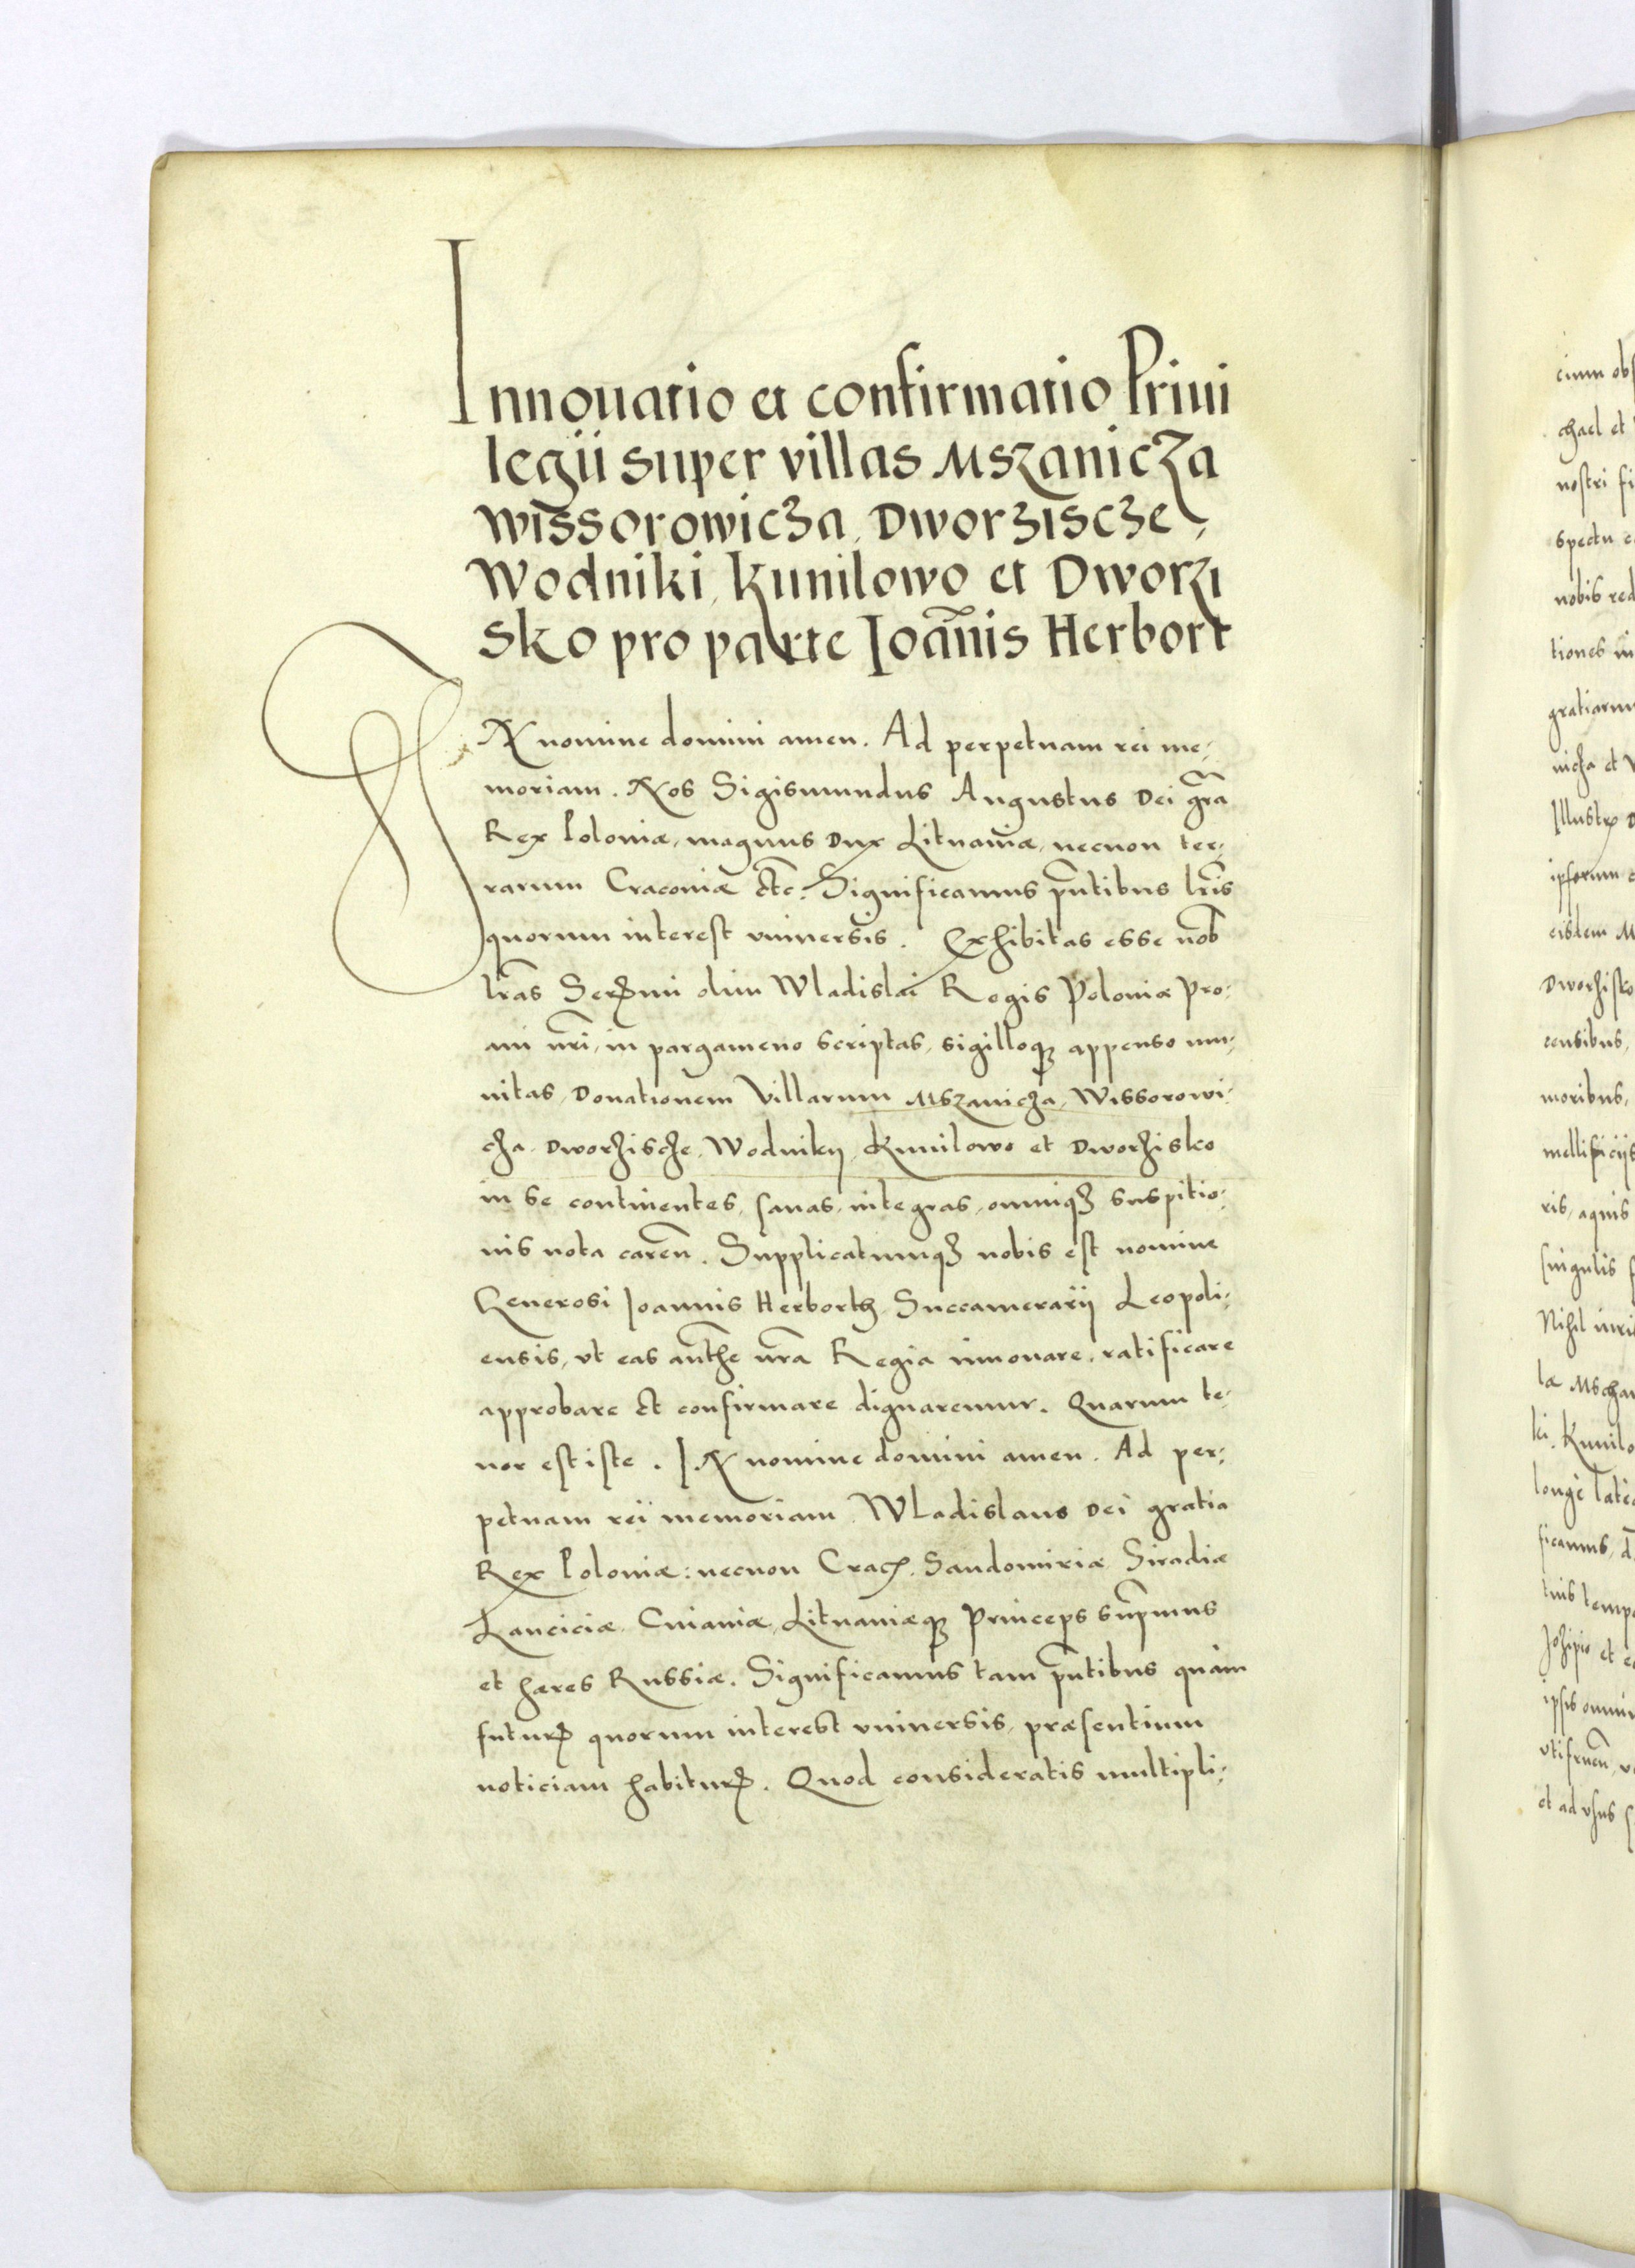 Innouatio et confirmatio Priui
legii super villas Mszanicza
Wissorowicza, Dworziscze,
Wodniki, Kunilowo et Dworzi
sko pro parte Joãnis Herbort
IN nomine domini amen. Ad perpetuam rei me,
moriam. Nos Sigismundus Augustus Dei gr̃a
Rex Poloniæ, magnus Dux Lituaniæ, necnon ter,
rarum Craconiæ etc. Significamus pñtibus lr̃is
quorum interest vniuersis. Exhibitas esse nob̃
lr̃as Serᵐⁱ olim Wladislai Regis Poloniæ Pro,
aui nr̃i, in pargameno scriptas, sigilloqꝫ appenso mu,
nitas, Donationem Villarum Mszanicza, Wissorowi,
cza, Dworziscze, Wodniky, Kunilowo et Dworzisko
in se continentes, sanas, integras, omniqꝫ suspitio,
nis nota careñ. Supplicatumqꝫ nobis est nomine
Generosi Joannis Herborth Succamerarij Leopoli,
ensis, vt eas aũthe nr̃a Regia innouare, ratificare
approbare et confirmare dignaremur. Quarum te,
nor est iste. IN nomine domini amen. Ad per,
petuam rei memoriam. Wladislaus Dei gratia
Rex Poloniæ: necnon Cracꝫ. Sandomiriæ Siradiæ
Lanciciæ, Cuiauiæ, Lituaniæqꝫ Princeps supr̃mus
et hæres Russiæ. Significamus tam pñtibus quàm
futurꝭ quorum interest vniuersis, præsentium
noticiam habiturꝭ. Quod consideratis multipli,
cium obs
chael et
nostri fi
spectu
nobis red
tiones in
gratiarum
nicza et
Illustrꝭ D
ipsorum
eisdem M
Dworzisko
censibus,
moribus,
mellificijs
ris, aquis
singulis
Nihil iuris
læ Mscha
ki, Kunilo
longè latè
ficamus,
tuis temp
et
ipsis omni
et ad vsus